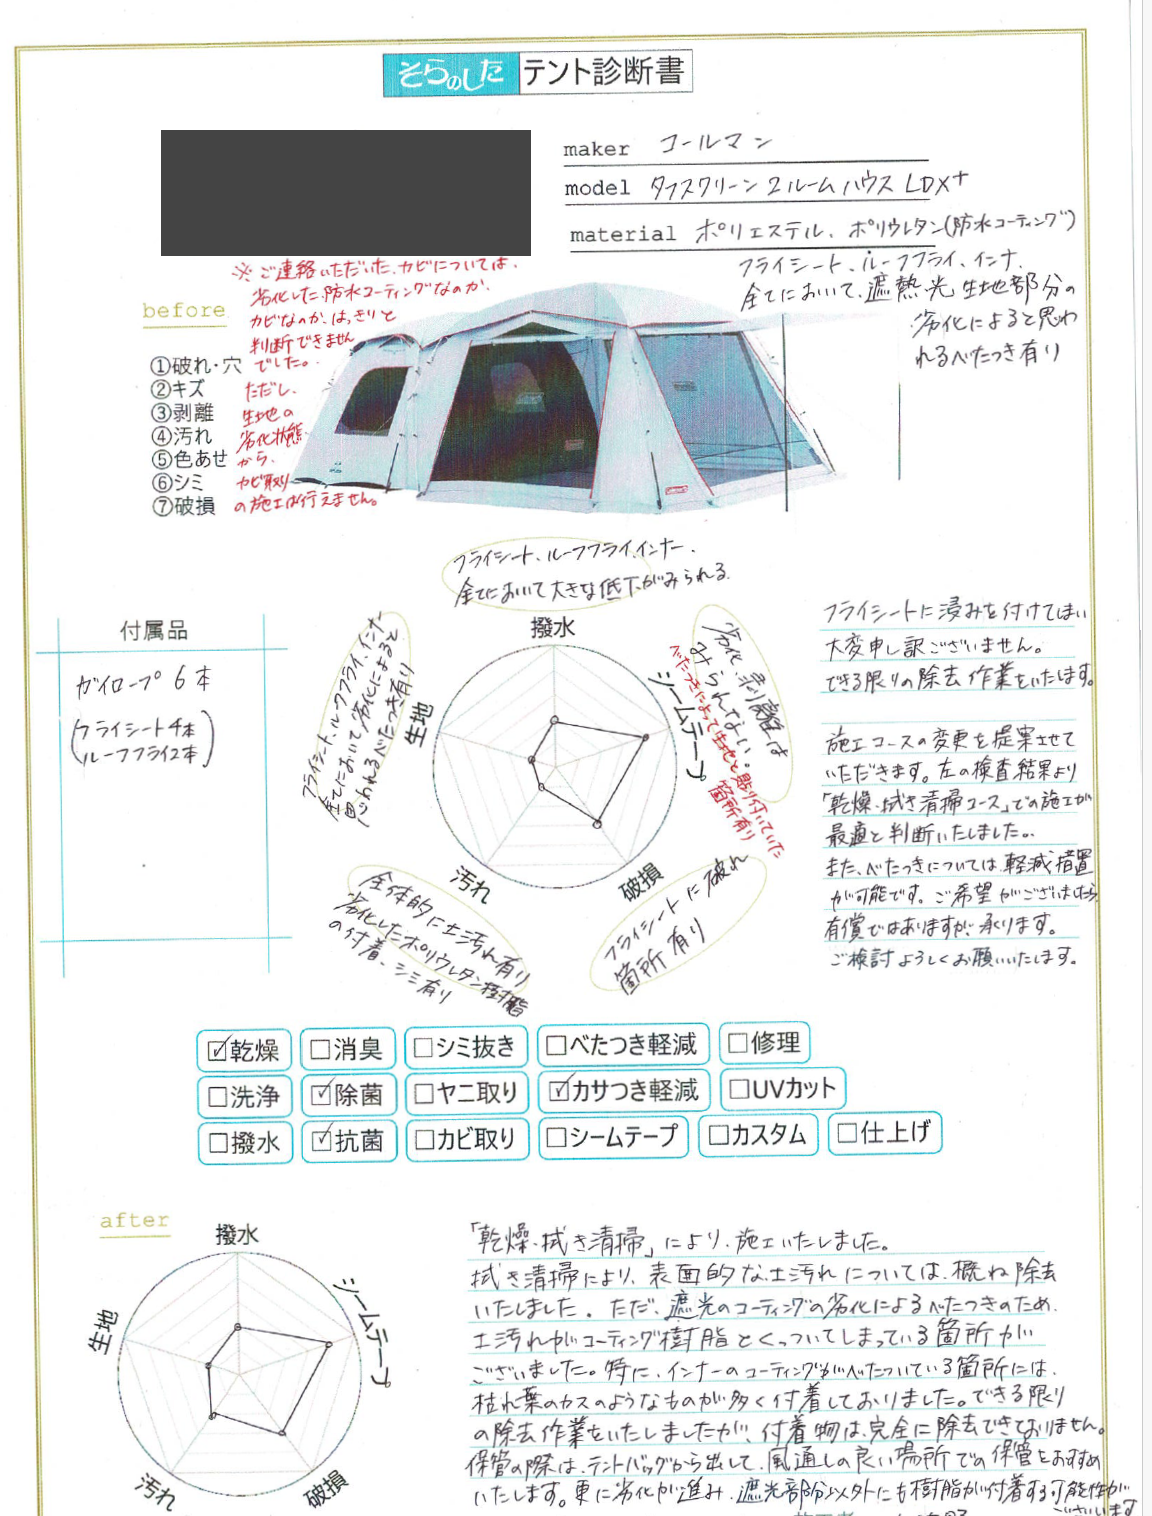 そらのした テント診断書
maker コールマン
model タフスクリーン2ルームハウス LDX+
material ポリエステル、ポリウレタン(防水コーティング)
フライシート、ルーフフライ、インナ、
全てにおいて、遮熱光生地部分の
劣化によると思わ
れるべたつき有り
※ご連絡いただいた、カビについては、
劣化した防水コーティングなのか、
カビなのか、はっきりと
判断できません
でした。
ただし、
生地の
劣化状態
から、
カビ取り
の施工は行えません。
before
①破れ・穴
②キズ
③剥離
④汚れ
⑤色あせ
⑥シミ
⑦破損
フライシート、ルーフフライ、インナー、
全てにおいて大きな低下がみられる
付属品
ガイロープ 6本
(フライシート4本
ルーフフライ2本)
撥水
シームテープ
破損
汚れ
生地
フライシート、ルーフフライ、インナー
全てにおいて劣化によると
思われるべたつき有り
劣化、剥離は
みられない。
べたつきによって生地と貼り付いていた
箇所有り
フライシートに破れ
箇所有り
全体的に土汚れ有り
劣化したポリウレタン樹脂
の付着、シミ有り
フライシートに浸みを付けてしまい
大変申し訳ございません。
できる限りの除去作業をいたします。
施工コースの変更を提案させて
いただきます。左の検査結果より
「乾燥・拭き清掃コース」での施工が
最適と判断いたしました。
また、べたつきについては軽減措置
が可能です。ご希望がございましたら、
有償ではありますが、承ります。
ご検討よろしくお願いいたします。
☑乾燥 □消臭 □シミ抜き □べたつき軽減 □修理
□洗浄 ☑除菌 □ヤニ取り ☑カサつき軽減 □UVカット
□撥水 ☑抗菌 □カビ取り □シームテープ □カスタム □仕上げ
after
撥水
シームテープ
破損
汚れ
生地
「乾燥・拭き清掃」により、施工いたしました。
拭き清掃により、表面的な土汚れについては、概ね除去
いたしました。ただ、遮光のコーティングの劣化によるべたつきのため、
土汚れがコーティング樹脂とくっついてしまっている箇所が
ございました。特に、インナーのコーティングがべたついている箇所には、
枯れ葉のカスのようなものが多く付着しておりました。できる限り
の除去作業をいたしましたが、付着物は完全に除去できておりません。
保管の際は、テントバッグから出して、風通しの良い場所での保管をおすすめ
いたします。更に劣化が進み、遮光部分以外にも樹脂が付着する可能性が
ございます